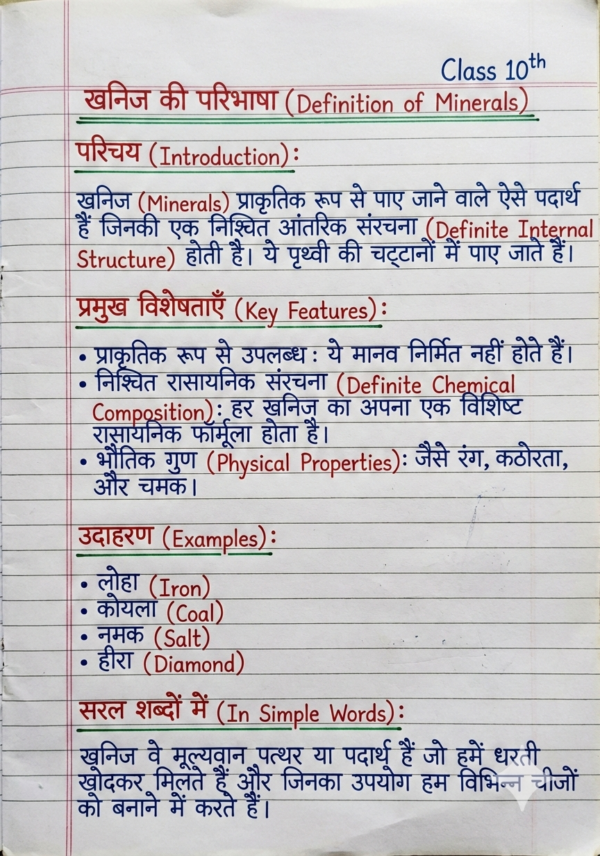 Class 10th
खनिज की परिभाषा (Definition of Minerals)
परिचय (Introduction):
खनिज (Minerals) प्राकृतिक रूप से पाए जाने वाले ऐसे पदार्थ
हैं जिनकी एक निश्चित आंतरिक संरचना (Definite Internal
Structure) होती है। ये पृथ्वी की चट्टानों में पाए जाते हैं।
प्रमुख विशेषताएँ (Key Features):
• प्राकृतिक रूप से उपलब्ध: ये मानव निर्मित नहीं होते हैं।
• निश्चित रासायनिक संरचना (Definite Chemical
Composition): हर खनिज का अपना एक विशिष्ट
रासायनिक फॉर्मूला होता है।
• भौतिक गुण (Physical Properties): जैसे रंग, कठोरता,
और चमक।
उदाहरण (Examples):
• लोहा (Iron)
• कोयला (Coal)
• नमक (Salt)
• हीरा (Diamond)
सरल शब्दों में (In Simple Words):
खनिज वे मूल्यवान पत्थर या पदार्थ हैं जो हमें धरती
खोदकर मिलते हैं और जिनका उपयोग हम विभिन्न चीजों
को बनाने में करते हैं।